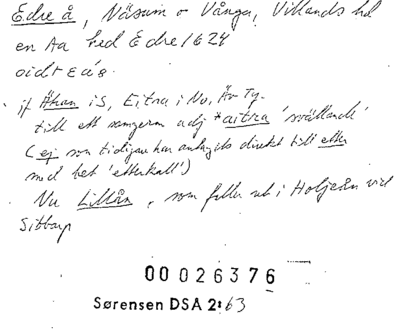 Edre å, Näsum o Vånga, Villands hd
en Aa hed Edre 1624
oidt Eás.
jf Åhan i S, Eitra i No, Äv Ty-
till ett samgerm adj *aitra 'svällande'
(ej som tidigare har antagits direkt till etter
med bet 'etterkall')
Nu Lillån, som faller ut i Holjeån vid
Sibbarp
00026376
Sørensen DSA 2:63